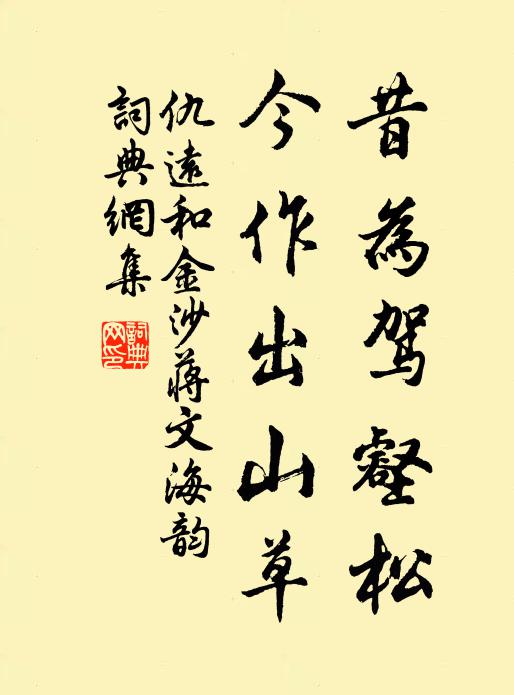 昔為駕壑松
今作出山草
仇遠和金沙蔣文海韵
詞典網集
詞典網印